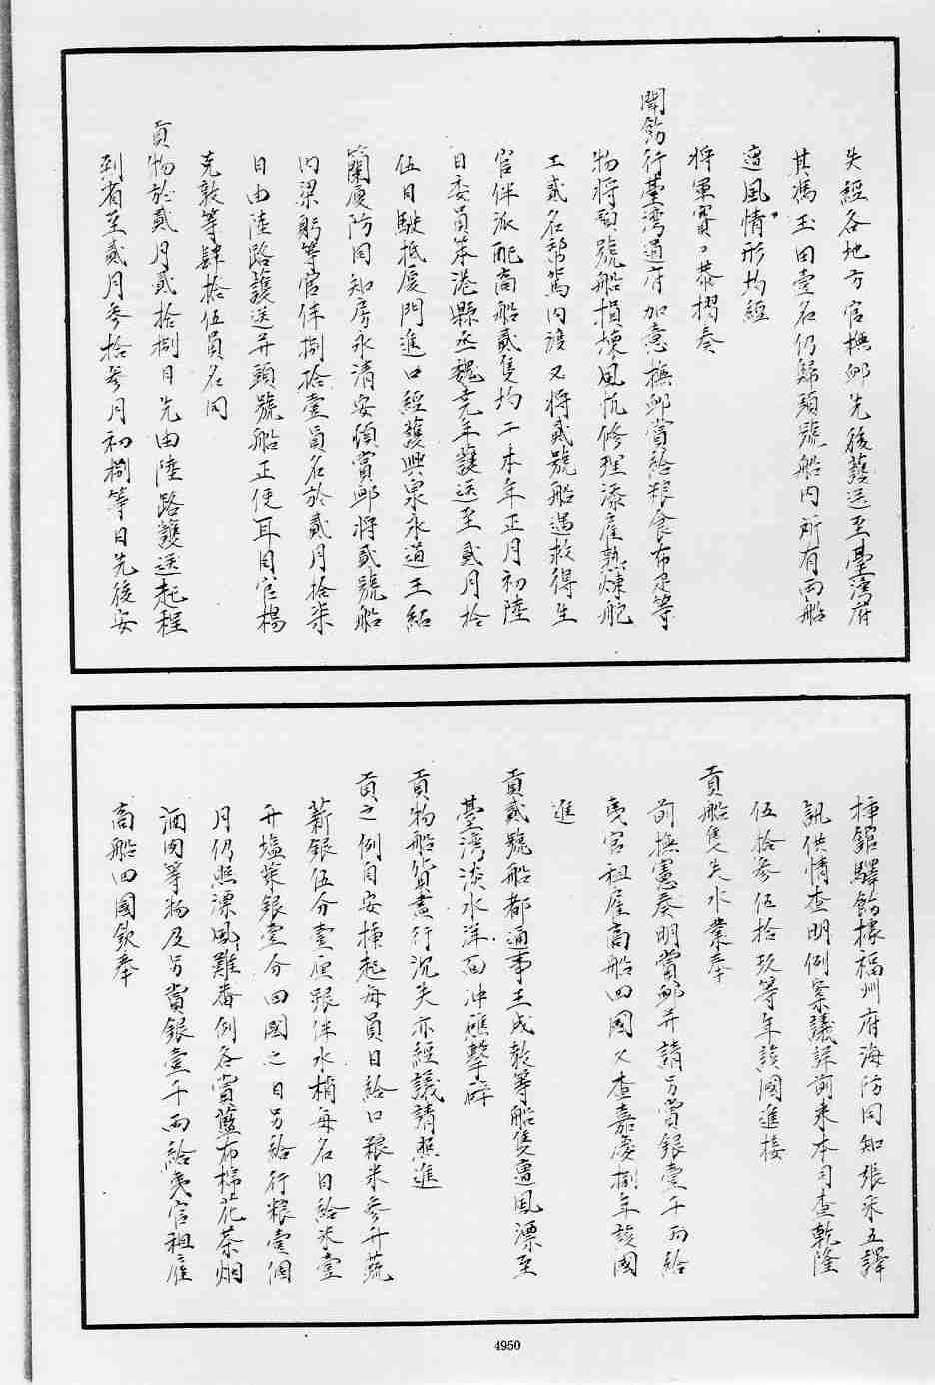 失經各地方官撫卹先後護送至臺灣府
其馮玉田壹名仍歸頭號船內所有兩船
遭風情形均經
將軍賽 恭摺奏
聞飭行臺灣道府加意撫卹賞給粮食布疋等
物將頭號船損壞風抗修理添雇熟煉舵
工貳名帮駕內渡又將貳號船遇救得生
官伴派配商船貳隻均于本年正月初陸
日委員笨港縣丞魏克年護送至貳月拾
伍日駛抵厦門進口經護興泉永道王紹
蘭厦防同知房永清安頓賞卹將貳號船
內梁躬等官伴捌拾壹員名於貳月拾柒
日由陸路護送并頭號船正使耳目官楊
克敦等肆拾伍員名同
貢物於貳月貳拾捌日先由陸路護送起程
到省至貳月參拾參月初捌等日先後安
揷館驛飭據福州府海防同知張采五譯
訊供情查明例案議詳前來本司查乾隆
伍拾參伍拾玖等年該國進接
貢船隻失水業奉
前撫憲奏明賞卹并請另賞銀壹千兩給
夷官租雇商船回國又查嘉慶捌年該國
進
貢貳號船都通事王成乾等船隻遭風漂至
臺灣淡水洋面冲礁擊碎
貢物船貨盡行沉失亦經議請照進
貢之例自安揷起每員日給口粮米參升蔬
薪銀伍分壹厘跟伴水梢每名日給米壹
升塩菜銀壹分回國之日另給行粮壹個
月仍照漂風難番例各賞藍布棉花茶烟
酒肉等物及另賞銀壹千兩給夷官租雇
商船回國欽奉
4950